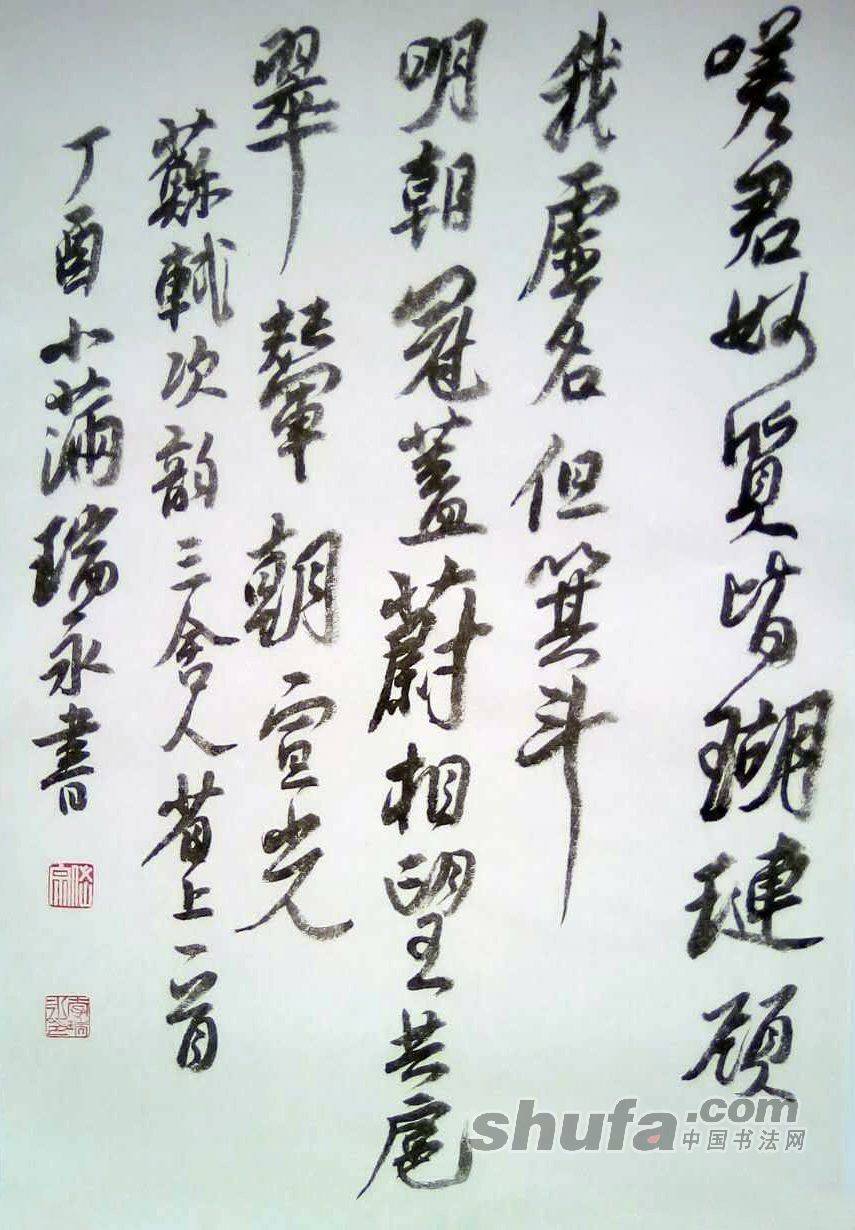 嗟君妙質皆瑚璉顧
我虛名但箕斗
明朝冠蓋蔚相望共扈
翠輦朝宣光
蘇軾次韵三舍人省上一首
丁酉小滿瑞永書
shufa.com
中国书法网